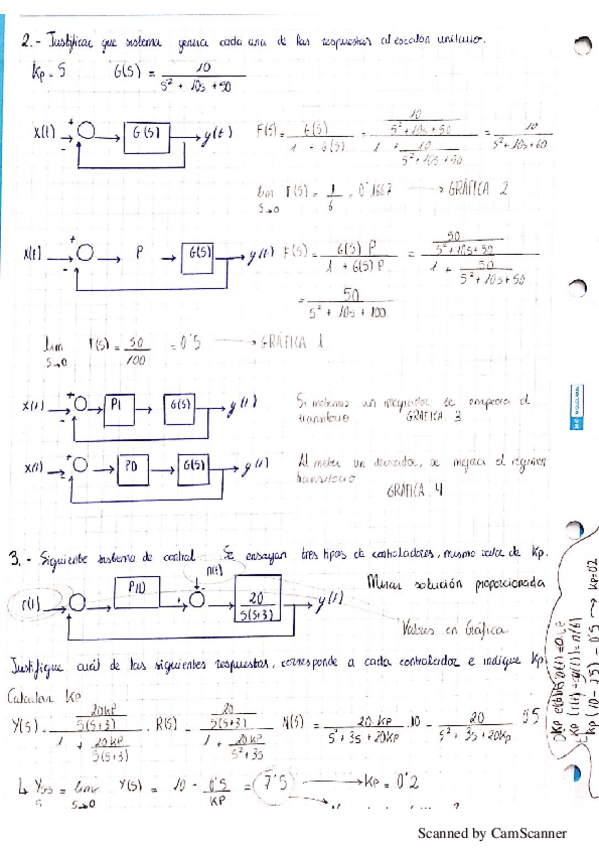 2.- Justificar que sistema genera cada una de las respuestas al escalon unitario.
Kp = 5 G(s) = 10 / s² + 10s + 50
x(t) + - G(s) y(t) F(s) = G(s) / 1 + G(s) = 10 / s² + 10s + 50 / 1 + 10 / s² + 10s + 50 = 10 / s² + 10s + 60
lim s→0 F(s) = 1/6 = 0'1667 → GRÁFICA 2
x(t) + - P G(s) y(t) F(s) = G(s) P / 1 + G(s) P = 50 / s² + 10s + 50 / 1 + 50 / s² + 10s + 50
= 50 / s² + 10s + 100
lim s→0 F(s) = 50/100 = 0'5 → GRÁFICA 1
x(t) + - PI G(s) y(t) Si metemos un integrador se empeora el
transitorio GRÁFICA 3
x(t) + - PD G(s) y(t) Al meter un derivador, se mejora el régimen
transitorio
GRÁFICA 4
3.- Siguiente sistema de control. Se ensayan tres tipos de controladores, mismo valor de Kp.
r(t) PID + - n(t) 20 / s(s+3) y(t) Mirar solución proporcionada
Valores en Gráfica
Justifique cuál de las siguientes respuestas, corresponde a cada controlador e indique Kp
Calcular Kp
Y(s) = 20Kp / s(s+3) / 1 + 20Kp / s(s+3) · R(s) - 20 / s(s+3) / 1 + 20Kp / s²+3s N(s) = 20·Kp / s²+3s+20Kp · 10 - 20 / s²+3s+20Kp
↳ Yss = lim s→0 Y(s) = 10 - 0'5 / KP = 7'5 → Kp = 0'2
Kp (10 - 7'5) = 0'5 → Kp = 0'2
Scanned by CamScanner